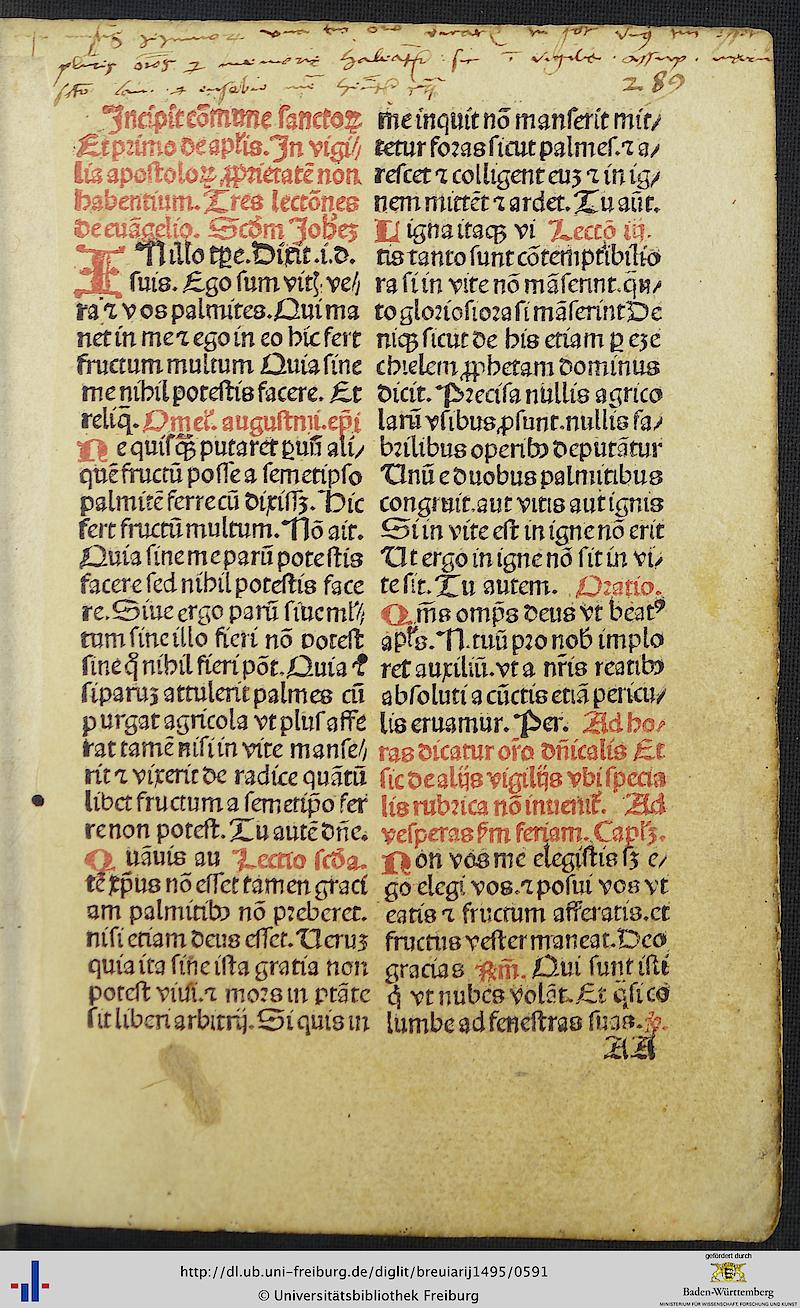 289
Incipit cōmune sanctoꝝ
Et primo de apl̓is. In vigi//
lis apostoloꝝ ꝓprietatē non
habentium. Tres lectōnes
de euāgelio. Scd̄m Joheꝫ
IN illo tp̄e. Dixit .i. d.
suis. Ego sum vitꝭ ve//
ra ⁊ vos palmites. Qui ma
net in me ⁊ ego in eo hic fert
fructum multum Quia sine
me nihil potestis facere. Et
reliq̄. Omel̓. augustini. ep̄i
Ne quisꝙ̄ putaret
quē fructū posse a semetipso
palmitē ferre cū dixissꝫ. Hic
fert fructū multum. Nō ait.
Quia sine me parū potestis
facere sed nihil potestis face
re. Siue ergo parū siue ml̓//
tum sine illo fieri nō potest
sine q̊ nihil fieri pōt. Quia
si paruꝫ attulerit palmes cū
purgat agricola vt plus affe
rat tamē nisi in vite manse//
rit ⁊ vixerit de radice quātū
libet fructum a semetip̄o fer
re non potest. Tu autē dn̄e.
Quāuis au Lectio scd̄a.
tē xp̄us nō esset tamen graci
am palmitibꝰ nō preberet.
nisi etiam deus esset. Ueruꝫ
quia ita sine ista gratia non
potest viui. ⁊ mors in ptāte
sit liberi arbitrij. Si quis in
me inquit nō manserit mit/
tetur foras sicut palmes. ⁊ a/
rescet ⁊ colligent euꝫ ⁊ in ig/
nem mittēt ⁊ ardet. Tu aūt.
Ligna itaqꝫ vi Lectō iij.
tis tanto sunt cōtemptibilio
ra si in vite nō māserint. q̄n/
to gloriosiora si māserint De
niqꝫ sicut de his etiam ꝑ eze
chielem ꝓphetam dominus
dicit. Precisa nullis agrico
larū vsibus ꝓsunt. nullis fa/
brilibus operibꝰ deputātur
Unū e duobus palmitibus
congruit. aut vitis aut ignis
Si in vite est in igne nō erit
Ut ergo in igne nō sit in vi/
te sit. Tu autem. Oratio.
Qm̄s omp̄s deus vt beatꝰ
apl̓s. N. tuū pro nob̓ implo
ret auxiliū. vt a nr̄is reatibꝰ
absoluti a cūctis etiā pericu/
lis eruamur. Per. Ad ho/
ras dicatur or̄o dn̄icalis Et
sic de alijs vigilijs vbi specia
lis rubrica nō inuenit̓. Ad
vesperas sꝫm feriam. Capl̓ꝫ.
Non vos me elegistis sꝫ e/
go elegi vos. ⁊ posui vos vt
eatis ⁊ fructum afferatis. et
fructus vester maneat. Deo
gracias Rm̄. Qui sunt isti
q̇ vt nubes volāt. Et q̇si co
lumbe ad fenestras suas. ꝟ.
AA
http://dl.ub.uni-freiburg.de/diglit/breuiarij1495/0591
© Universitätsbibliothek Freiburg
gefördert durch
Baden-Württemberg
MINISTERIUM FÜR WISSENSCHAFT, FORSCHUNG UND KUNST